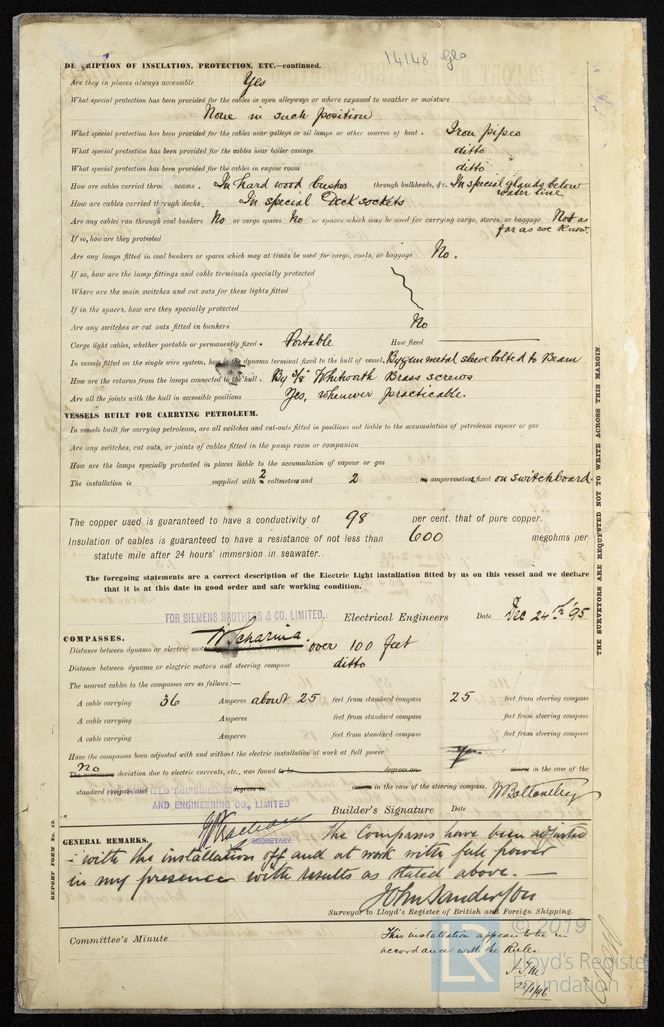 14148 Gls
DESCRIPTION OF INSULATION, PROTECTION, ETC.—continued.
Are they in places always accessible Yes
What special protection has been provided for the cables in open alleyways or where exposed to weather or moisture
None in such position
What special protection has been provided for the cables near galleys or oil lamps or other sources of heat . Iron pipes
What special protection has been provided for the cables near boiler casings ditto
What special protection has been provided for the cables in engine room ditto
How are cables carried through beams . In hard wood bushes through bulkheads, &c. In special glands below water line
How are cables carried through decks . In special Deck sockets
Are any cables run through coal bunkers No or cargo spaces No or spaces which may be used for carrying cargo, stores, or baggage Not as far as we know.
If so, how are they protected
Are any lamps fitted in coal bunkers or spaces which may at times be used for cargo, coals, or baggage No.
If so, how are the lamp fittings and cable terminals specially protected
Where are the main switches and cut outs for these lights fitted
If in the spaces, how are they specially protected
Are any switches or cut outs fitted in bunkers No
Cargo light cables, whether portable or permanently fixed . Portable How fixed
In vessels fitted on the single wire system, how is the dynamo terminal fixed to the hull of vessel, By gun metal sleeve bolted to Beam
How are the returns from the lamps connected to the hull . By 3/8" Whitworth Brass screws
Are all the joints with the hull in accessible positions Yes, whenever practicable.
VESSELS BUILT FOR CARRYING PETROLEUM.
In vessels built for carrying petroleum, are all switches and cut-outs fitted in positions not liable to the accumulation of petroleum vapour or gas
Are any switches, cut outs, or joints of cables fitted in the pump room or companion
How are the lamps specially protected in places liable to the accumulation of vapour or gas
The installation is supplied with 2 voltmeters and 2 amperemeters fixed on switchboard.
The copper used is guaranteed to have a conductivity of 98 per cent. that of pure copper.
Insulation of cables is guaranteed to have a resistance of not less than 600 megohms per
statute mile after 24 hours' immersion in seawater.
The foregoing statements are a correct description of the Electric Light installation fitted by us on this vessel and we declare
that it is at this date in good order and safe working condition.
FOR SIEMENS BROTHERS & CO. LIMITED, Electrical Engineers Date Dec 24th/95
COMPASSES.
Distance between dynamo or electric motors over 100 feet
Distance between dynamo or electric motors and steering compass ditto
The nearest cables to the compasses are as follows:—
A cable carrying 36 Amperes about 25 feet from standard compass 25 feet from steering compass
A cable carrying Amperes feet from standard compass feet from steering compass
A cable carrying Amperes feet from standard compass feet from steering compass
Have the compasses been adjusted with and without the electric installation at work at full power Yes
The maximum No deviation due to electric currents, etc., was found to be degrees on course in the case of the
standard compass and degrees on course in the case of the steering compass
SHIPBUILDING
AND ENGINEERING CO., LIMITED
SECRETARY.
Builder's Signature Date
GENERAL REMARKS. The Compasses have been adjusted
with the installation off and at work with full power
in my presence with results as stated above. —
John Sanderson
Surveyor to Lloyd's Register of British and Foreign Shipping.
Committee's Minute
This installation appears to be in
accordance with the Rules
22/1/96
REPORT FORM No. 13.
THE SURVEYORS ARE REQUESTED NOT TO WRITE ACROSS THIS MARGIN.
LR
© 2019
Lloyd's Register
Foundation